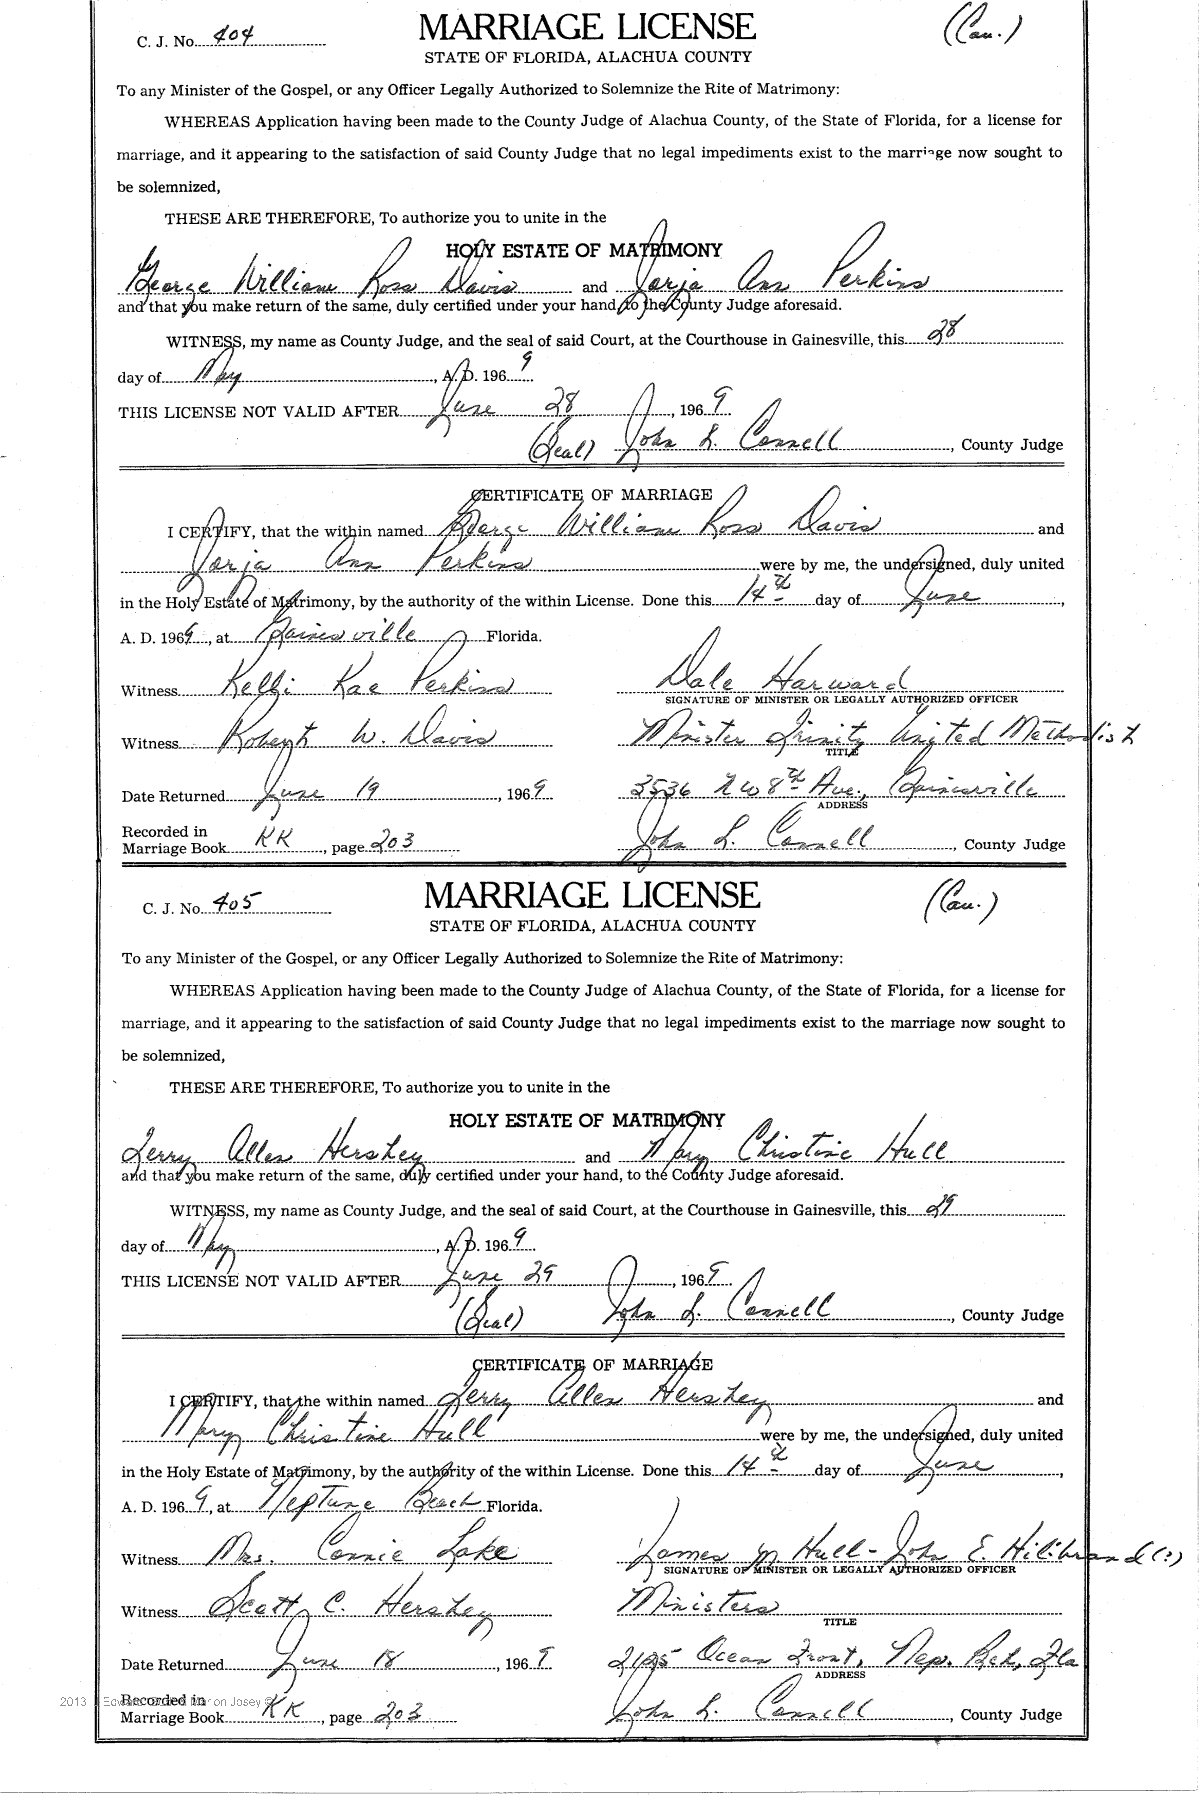 C. J. No. 404 MARRIAGE LICENSE (Cau.)
STATE OF FLORIDA, ALACHUA COUNTY
To any Minister of the Gospel, or any Officer Legally Authorized to Solemnize the Rite of Matrimony:
WHEREAS Application having been made to the County Judge of Alachua County, of the State of Florida, for a license for
marriage, and it appearing to the satisfaction of said County Judge that no legal impediments exist to the marriage now sought to
be solemnized,
THESE ARE THEREFORE, To authorize you to unite in the
HOLY ESTATE OF MATRIMONY
George William Ross Davis and Jorja Ann Perkins
and that you make return of the same, duly certified under your hand, to the County Judge aforesaid.
WITNESS, my name as County Judge, and the seal of said Court, at the Courthouse in Gainesville, this 28
day of May, A. D. 1969.
THIS LICENSE NOT VALID AFTER June 28, 1969.
(Seal) John L. Connell, County Judge
CERTIFICATE OF MARRIAGE
I CERTIFY, that the within named George William Ross Davis and
Jorja Ann Perkins were by me, the undersigned, duly united
in the Holy Estate of Matrimony, by the authority of the within License. Done this 14th day of June,
A. D. 1969, at Gainesville Florida.
Witness Kelli Kae Perkins Dale Harward
SIGNATURE OF MINISTER OR LEGALLY AUTHORIZED OFFICER
Witness Robert W. Davis Minister Trinity United Methodist
TITLE
Date Returned June 19, 1969 3536 NW 8th Ave., Gainesville
ADDRESS
Recorded in
Marriage Book KK, page 203 John L. Connell, County Judge
C. J. No. 405 MARRIAGE LICENSE (Cau.)
STATE OF FLORIDA, ALACHUA COUNTY
To any Minister of the Gospel, or any Officer Legally Authorized to Solemnize the Rite of Matrimony:
WHEREAS Application having been made to the County Judge of Alachua County, of the State of Florida, for a license for
marriage, and it appearing to the satisfaction of said County Judge that no legal impediments exist to the marriage now sought to
be solemnized,
THESE ARE THEREFORE, To authorize you to unite in the
HOLY ESTATE OF MATRIMONY
Terry Allen Hershey and Mary Christine Hull
and that you make return of the same, duly certified under your hand, to the County Judge aforesaid.
WITNESS, my name as County Judge, and the seal of said Court, at the Courthouse in Gainesville, this 29
day of May, A. D. 1969.
THIS LICENSE NOT VALID AFTER June 29, 1969.
(Seal) John L. Connell, County Judge
CERTIFICATE OF MARRIAGE
I CERTIFY, that the within named Terry Allen Hershey and
Mary Christine Hull were by me, the undersigned, duly united
in the Holy Estate of Matrimony, by the authority of the within License. Done this 14th day of June,
A. D. 1969, at Neptune Beach Florida.
Witness Mrs. Connie Lake James M Hull - John E. Hilibrand (?)
SIGNATURE OF MINISTER OR LEGALLY AUTHORIZED OFFICER
Witness Scott C. Hershey Ministers
TITLE
Date Returned June 18, 1969 Ocean Front, Nep. Bch, Fla
ADDRESS
2013
Recorded in
Marriage Book KK, page 203 John L. Connell, County Judge